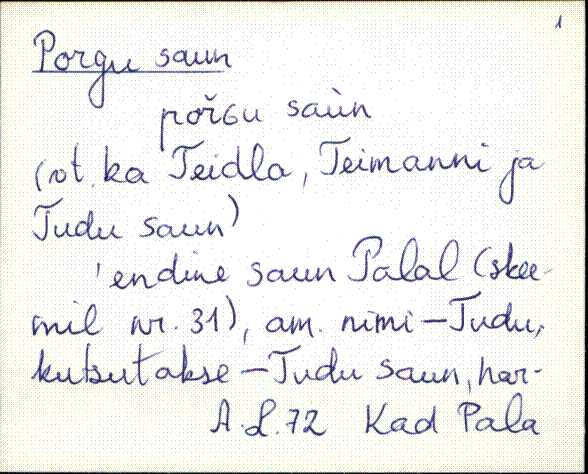 1
Porgu saun
pořɢu saùn
(vt. ka Teidla, Teimanni ja
Tudu saun)
'endine saun Palal (skee-
mil nr. 31), am. nimi – Tudu,
kutsutakse – Tudu saun, har-
A.L. 72 Kad Pala